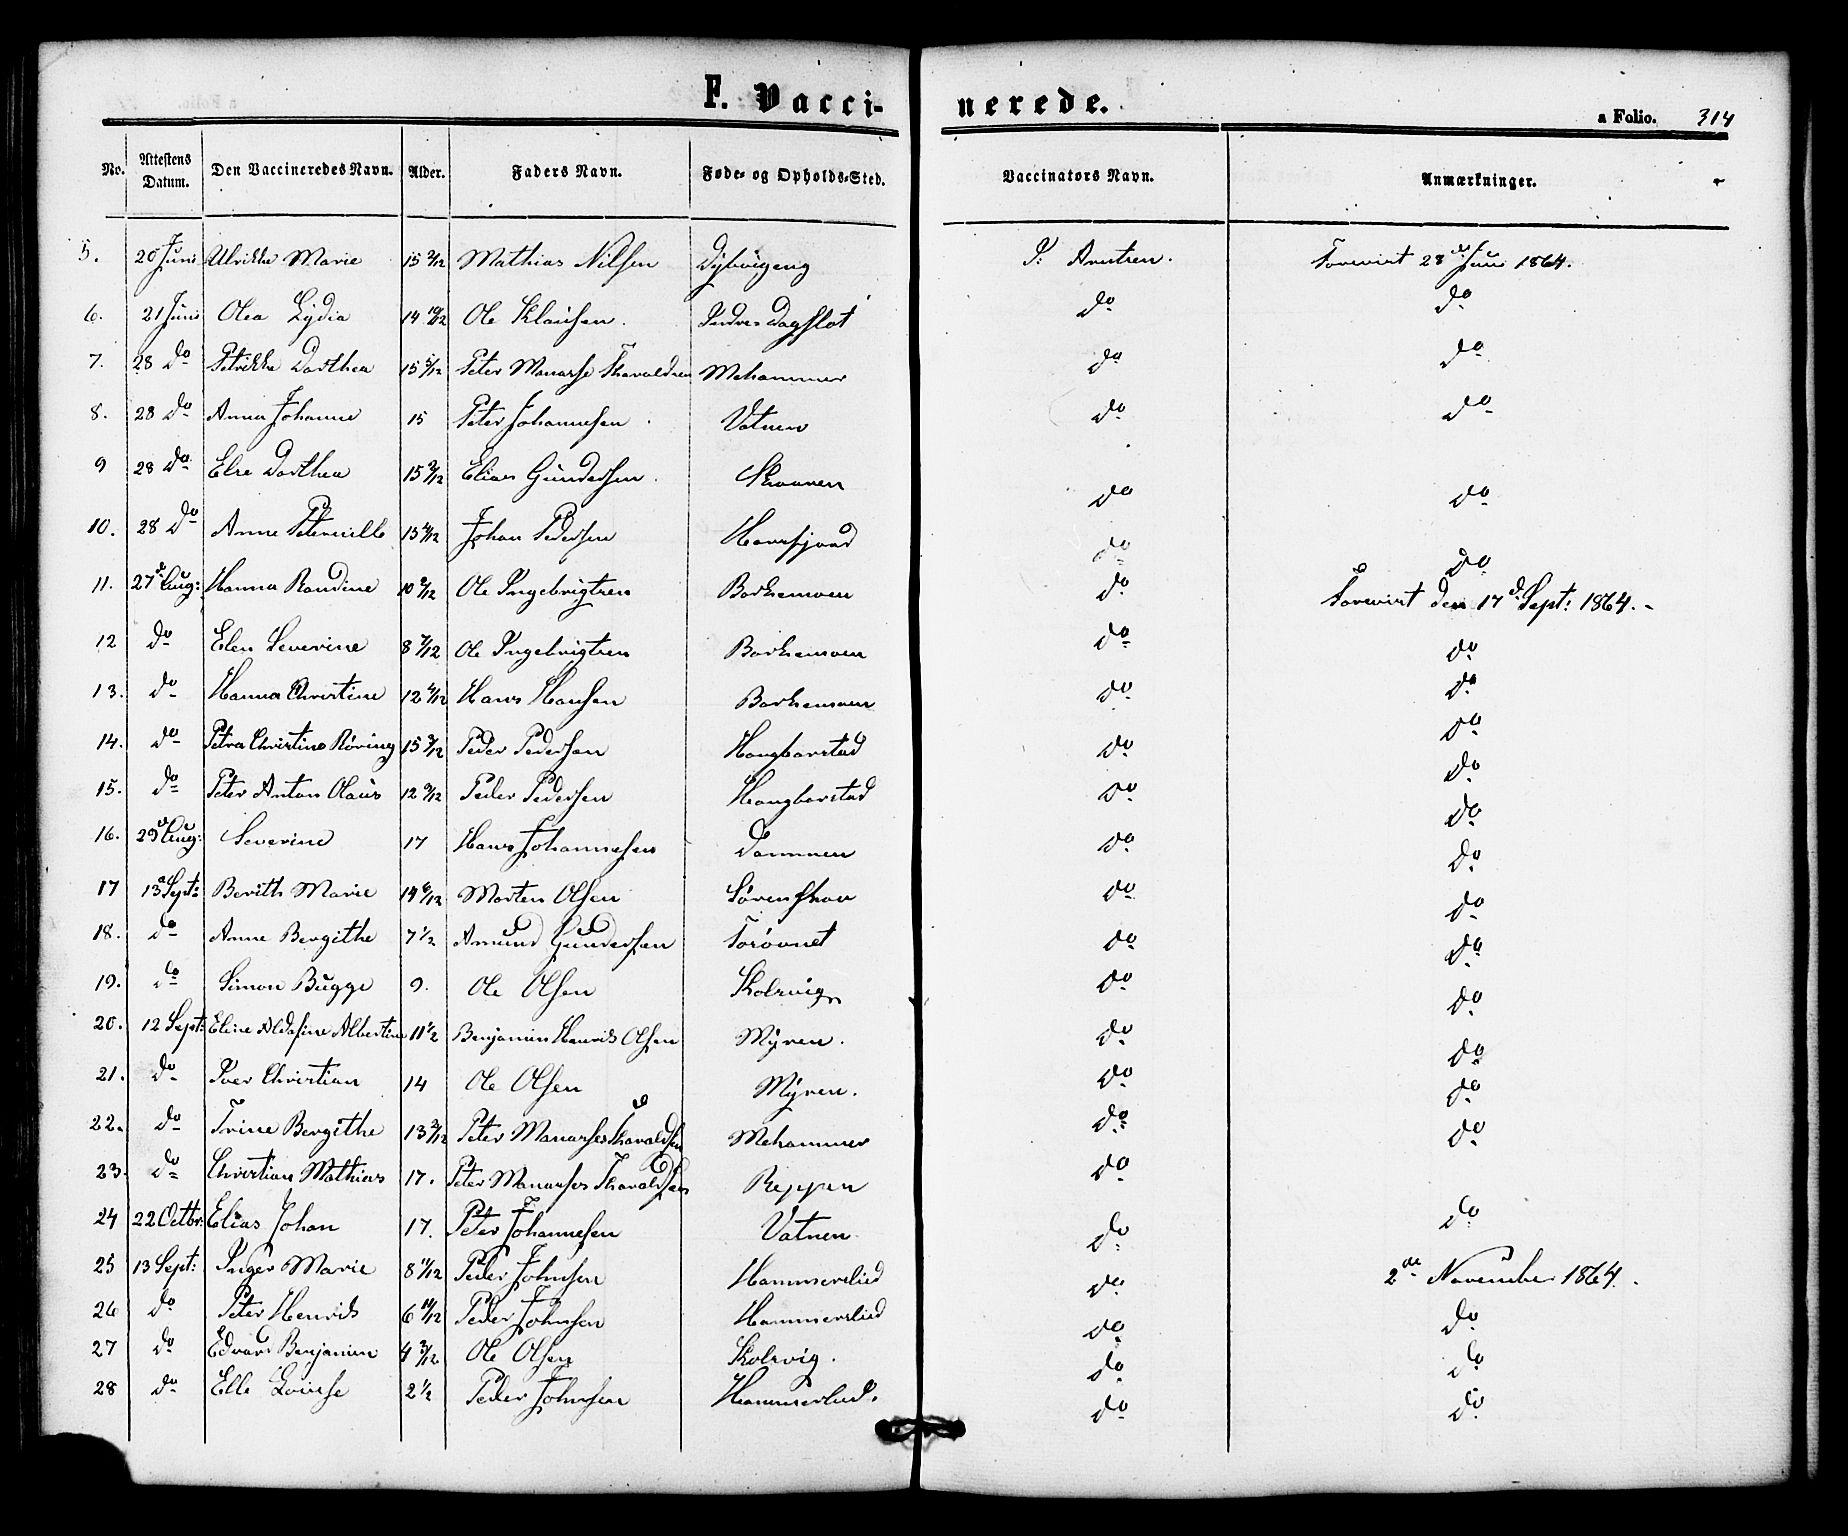 F. Vaccinerede.
a Folio. 314
No. Attestens Datum. Den Vaccineredes Navn. Alder. Faders Navn. Føde- og Opholds-Sted. Vaccinators Navn. Anmærkninger.
5. 20 Juni Ulrikke Marie 15 2/12 Mathias Nilsen Dybvigeng P. Arntsen. Forevist 28de Juni 1864.
6. 21 Juni Olea Lydia 14 10/12 Ole Klausen. Indre Dagslot do do
7. 28 do Petrikke Dorthea 15 5/12 Peter Manasse Tharaldsen Mehammer do do
8. 28 do Anna Johanne 15 Peter Johannesen. Vatnen do do
9 28 do Else Dorthea 15 3/12 Elias Gundersen. Skaanen do do
10. 28 do Anne Peternille 15 4/12 Johan Pedersen Havsfjord do do
11. 27de Aug: Hanna Randine 10 8/12 Ole Ingebrigtsen Borkenoen do Forevist den 17de Sept: 1864.
12 do Elen Severine 8 7/12 Ole Ingebrigtsen Borkenoen do do
13. do Hanna Christine 12 4/12 Hans Hansen Borkenoen do do
14. do Petra Christine Røring 15 3/12 Peder Pedersen Haugbarstad do do
15. do Peter Anton Olaus 12 9/12 Peder Pedersen Haugbarstad do do
16. 29de Aug: Severine 17 Hans Johannesen Dammen do do
17 13de Sept: Berith Marie 14 6/12 Morten Olsen Sørenshav do do
18. do Anne Bergithe 7 1/2 Amund Gundersen Forøvnet do do
19. do Simon Bugge 9. Ole Olsen Skolsvig do do
20. 12 Sept: Eline Aldafine Albertine 11 1/2 Benjamin Henrik Olsen Myren. do do
21. do Iver Christian 14 Ole Olsen Myren. do do
22. do Trine Bergithe 13 3/12 Peter Manasses Tharaldsen Mehammer do do
23. do Christian Mathias 17. Peter Manasses Tharaldsen Reppen do do
24 22 Octbr: Elias Johan 17. Peter Johannesen Vatnen do do
25 13 Sept: Inger Marie 8 11/12 Peder Johnsen Hammerslied do 2de November 1864.
26 do Peter Henrik 6 10/12 Peder Johnsen Hammerslied do do
27 do Edvard Benjamin 4 3/12 Ole Olsen Skolsvig. do do
28 do Elle Lovise 2 1/2 Peder Johnsen Hammerlied. do do